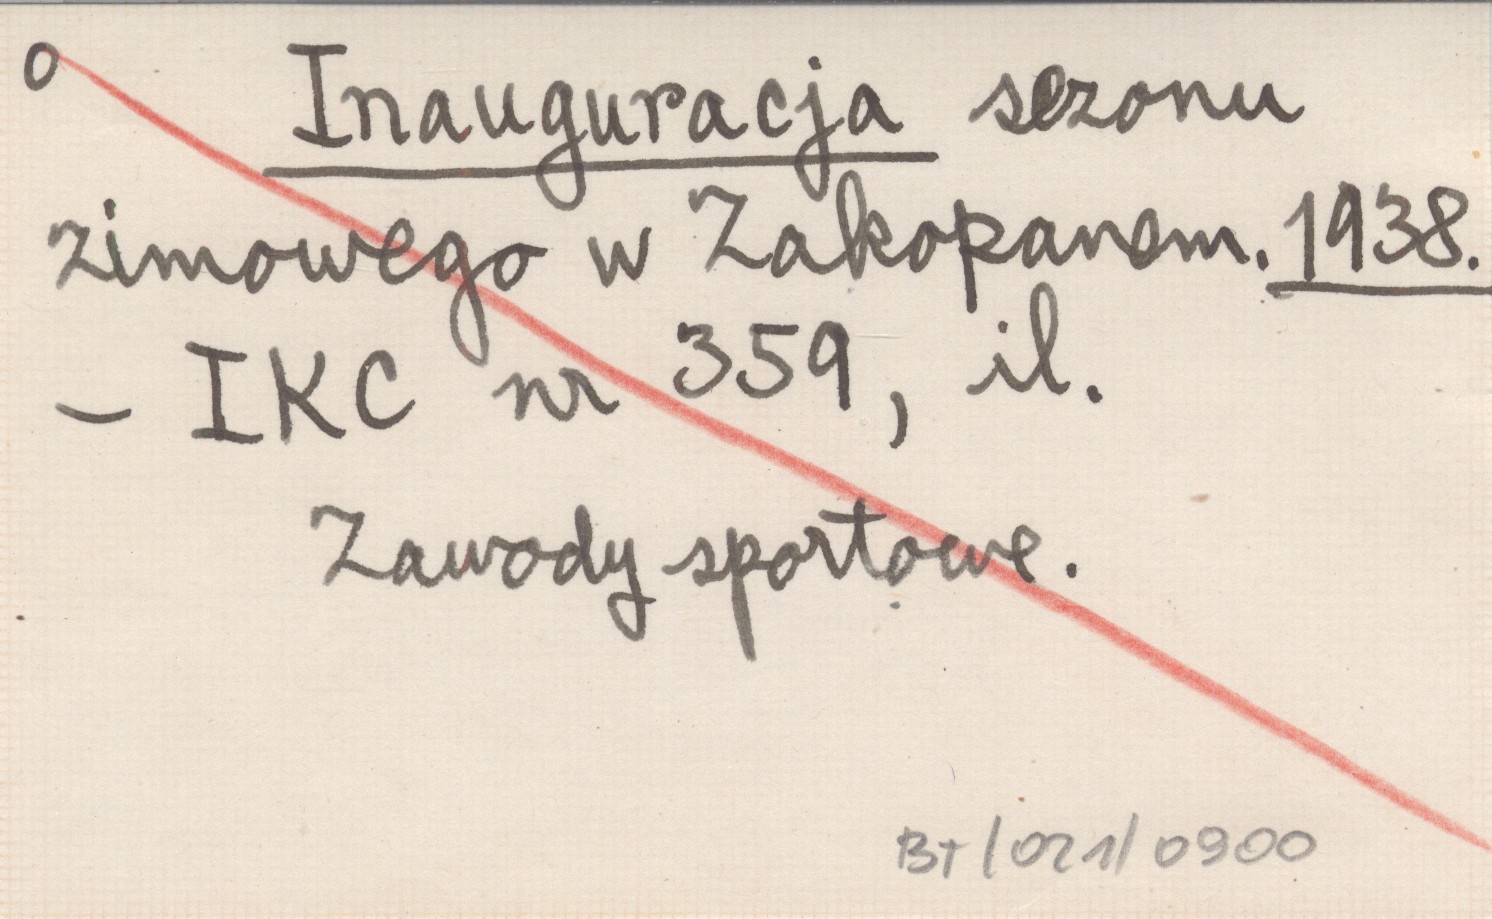 o Inauguracja sezonu
zimowego w Zakopanem. 1938.
- IKC nr 359, il.
Zawody sportowe.
BT/021/0900